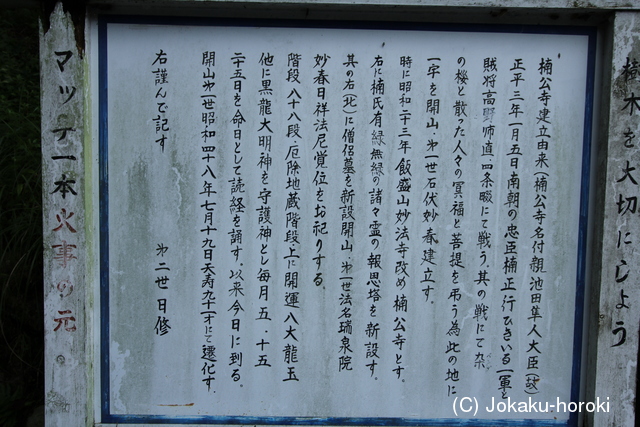 樹木を大切にしよう
楠公寺建立由来(楠公寺名付親池田隼人大臣(故)
正平三年一月五日南朝の忠臣楠正行ひきいる一軍
賊将高野师直、四条畷にて戦う、其の戦にて
の機と散った人々の冥福と菩提を弔う為此の地に
一宇を開山、㐧一世石伏妙春建立す。
時に昭和二十三年飯盛山妙法寺改め楠公寺とす。
右に楠氏有縁無縁の諸々霊の報思塔を新設す。
其の右(北)に僧侶墓を新設開山、㐧一世法名瑞泉院
妙春日祥法尼覚位をお祀りする。
階段、八十八段、厄除地蔵階段上に開運八大龍王
他に黒龍大明神を守護神とし毎月五、十五
二十五日を命日として読経を誦す。以来今日に到る。
開山㐧一世昭和四十八年七月十九日天寿九十一才にて遷化す。
右謹んで記す
㐧二世日修
マッチ一本火事の元。
(C) Jokaku-horoki